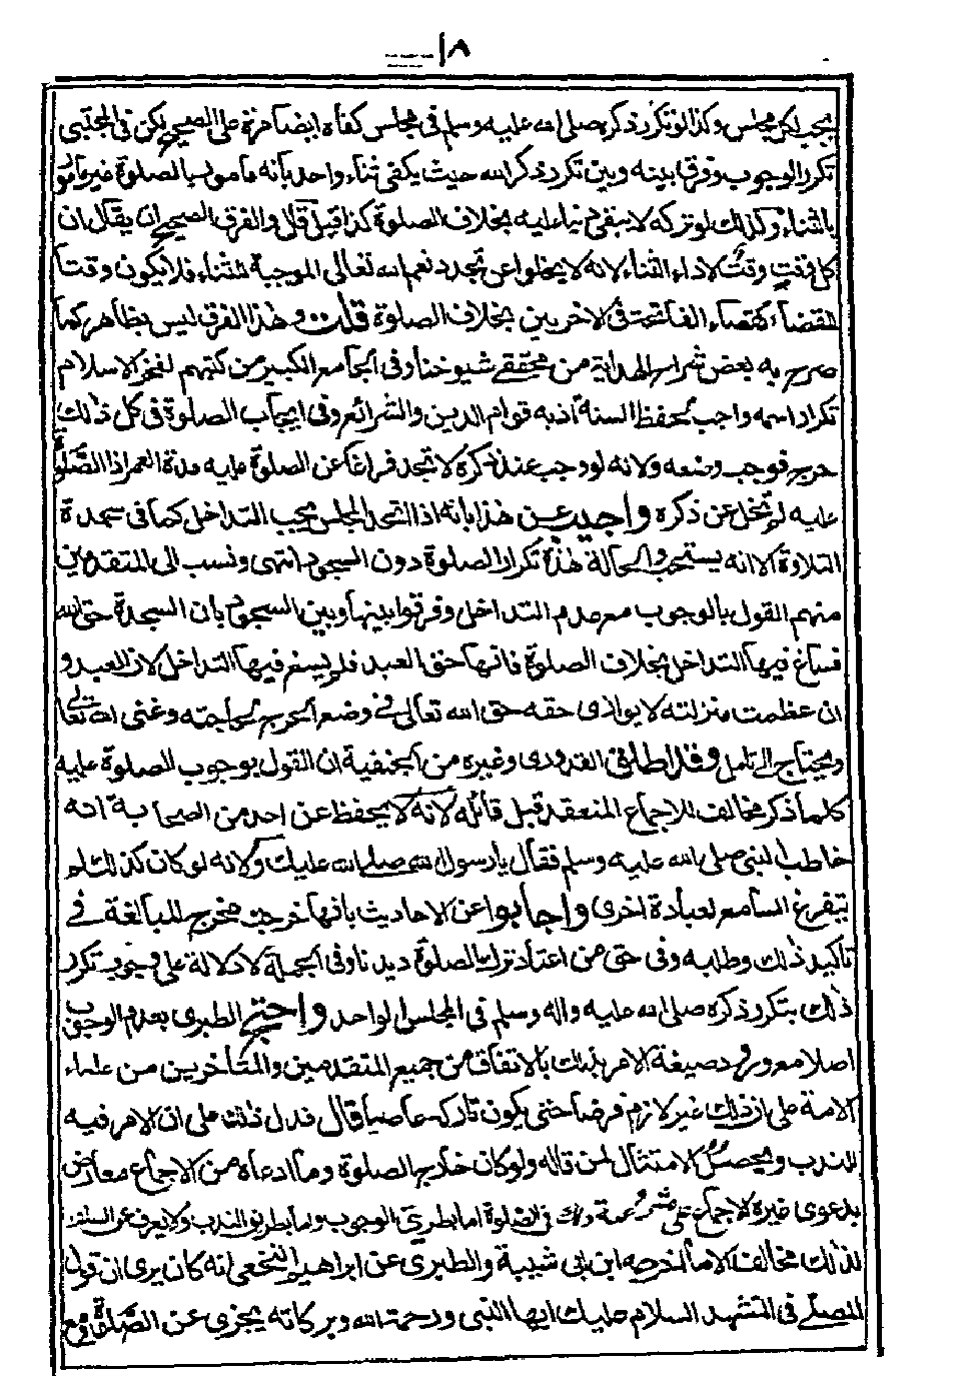 ١٨
يجب لكل مجلس وكذا لو تكرر ذكره صلى الله عليه وسلم في مجلس كفاه ايضا مرة على الصحيح لكن في المجتبى
تكرر الوجوب وفرق بينه وبين تكرر ذكر الله حيث يكفي ثناء واحد بأنه مأمور بالصلوة غير مأمور
بالثناء وكذلك لو تركه لا يبقى دينا عليه بخلاف الصلوة كذا قيل قال والفرق الصحيح ان يقال ان
كل وقت وقت لاداء الثناء لانه لا يخلوا عن تجدد نعم الله تعالى الموجبة للثناء فلا يكون وقتا
للقضاء كقضاء الفاتحة في الاخريين بخلاف الصلوة قلت وهذا الفرق ليس بظاهر كما
صرح به بعض شراح الهداية من محققي شيوخنا وفي الجامع الكبير من كتبهم لفخر الاسلام
تكرار اسمه واجب لحفظ السنة اذ به قوام الدين والشرائع وفي ايجاب الصلوة في كل ذلك
حرج فوجب وضعه ولانه لو وجب عند ذكره لا تجد فراغا عن الصلوة عليه مدة العمر اذ الصلوة
عليه لم تخل عن ذكره واجيب عن هذا بانه اذا اتحد المجلس يجب التداخل كما في سجدة
التلاوة الا انه يستحب والحالة هذه تكرار الصلوة دون السجود انتهى ونسب الى المتقدمين
منهم القول بالوجوب مع عدم التداخل وفرقوا بينها وبين السجود بان السجدة حق الله
فساغ فيها التداخل بخلاف الصلوة فانها حق العبد فلم يسغ فيها التداخل لان العبد و
ان عظمت منزلته لا يوازى حقه حق الله تعالى في وضع الحرج لحاجته وغنى الله تعالى
ويحتاج الى تامل وقد اطلق القدورى وغيره من الحنفية ان القول بوجوب الصلوة عليه
كلما ذكر مخالف للاجماع المنعقد قبل قائله لانه لا يحفظ عن احد من الصحابة انه
خاطب النبي صلى الله عليه وسلم فقال يا رسول الله صلى الله عليك ولانه لو كان كذلك لم
يتفرغ السامع لعبادة اخرى واجابوا عن الاحاديث بانها خرجت مخرج المبالغة في
تأكيد ذلك وطلبه وفي حق من اعتاد ترك الصلوة ديدنا وفي الجملة لا دلالة على وجوب تكرر
ذلك بتكرر ذكره صلى الله عليه واله وسلم في المجلس الواحد واحتج الطبرى بعدم الوجوب
اصلا مع ورود صيغة الامر بذلك بالاتفاق من جميع المتقدمين والمتأخرين من علماء
الامة على ان ذلك غير لازم فرضا حتى يكون تاركه عاصيا قال فدل ذلك على ان الامر فيه
للندب ويحصل الامتثال لمن قاله ولو كان خارج الصلوة وما ادعاه من الاجماع معارض
بدعوى غيره الاجماع على مشروعية ذلك في الصلوة اما بطريق الوجوب واما بطريق الندب ولا يعرف عن السلف
لذلك مخالف الا ما اخرجه ابن ابي شيبة والطبرى عن ابراهيم النخعي انه كان يرى ان قول
المصلي في التشهد السلام عليك ايها النبي ورحمة الله وبركاته يجزى عن الصلوة ومع